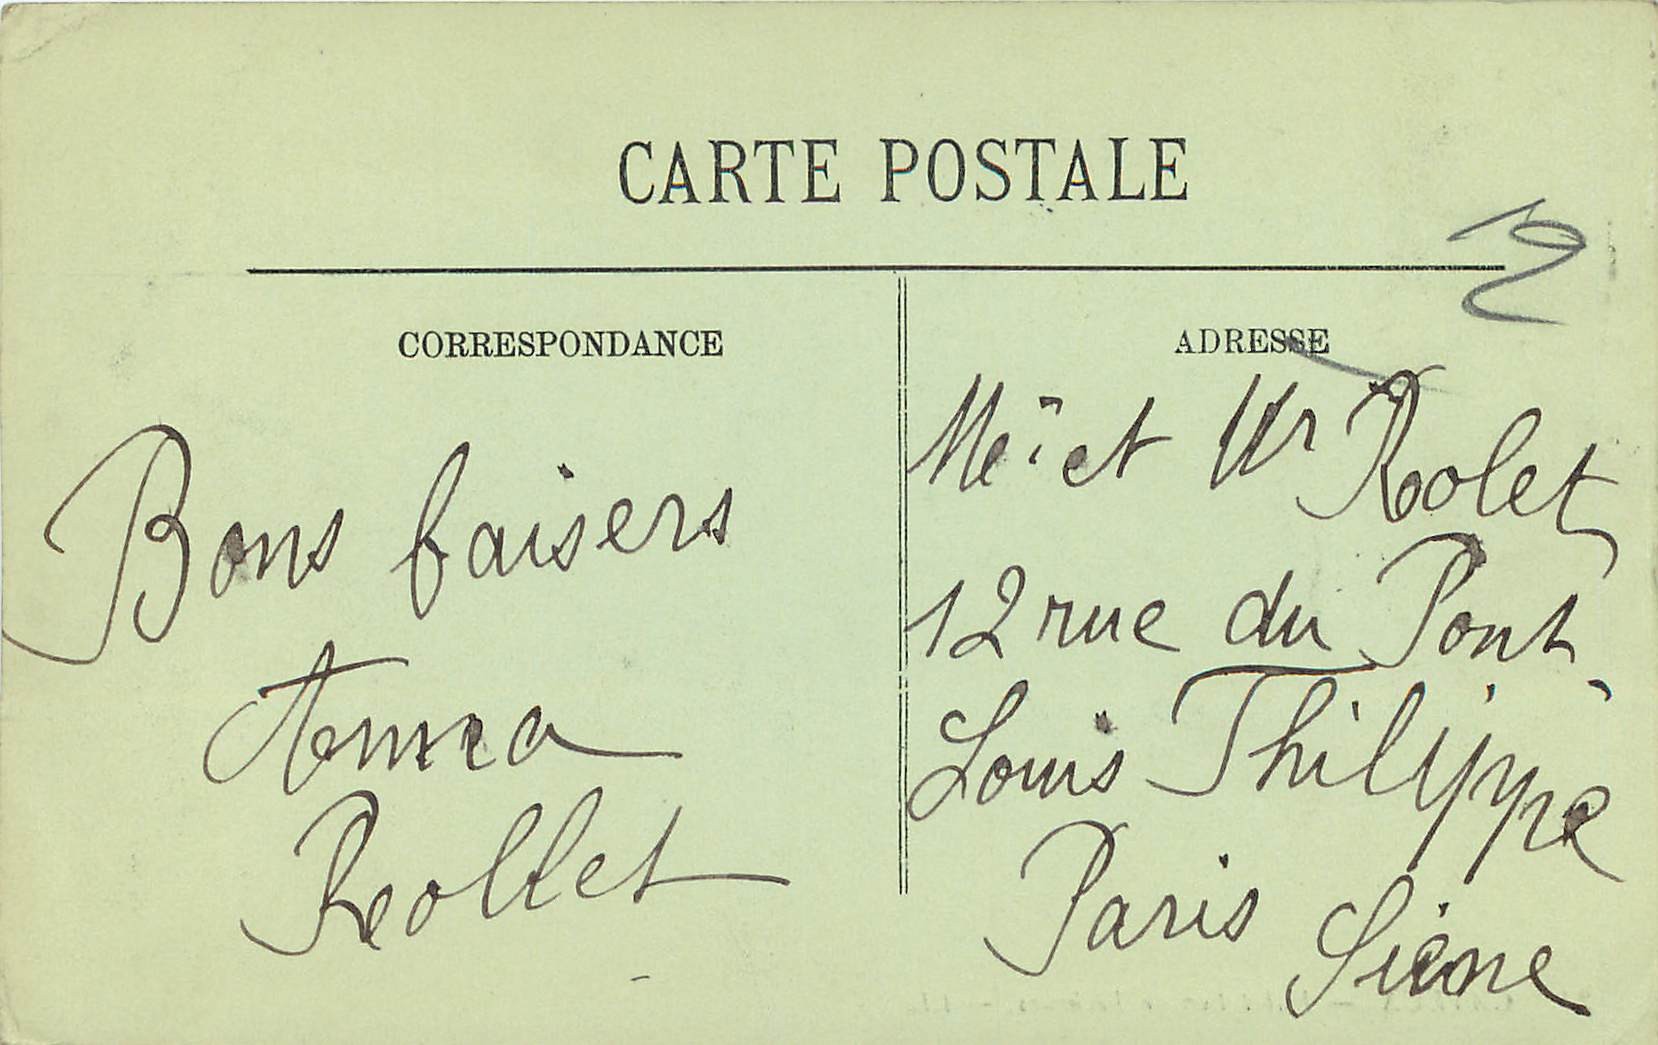 CARTE POSTALE
CORRESPONDANCE
Bons baisers
Rollet
ADRESSE
et Mr Rolet
12 rue du Pont
Louis Philippe
Paris Siene